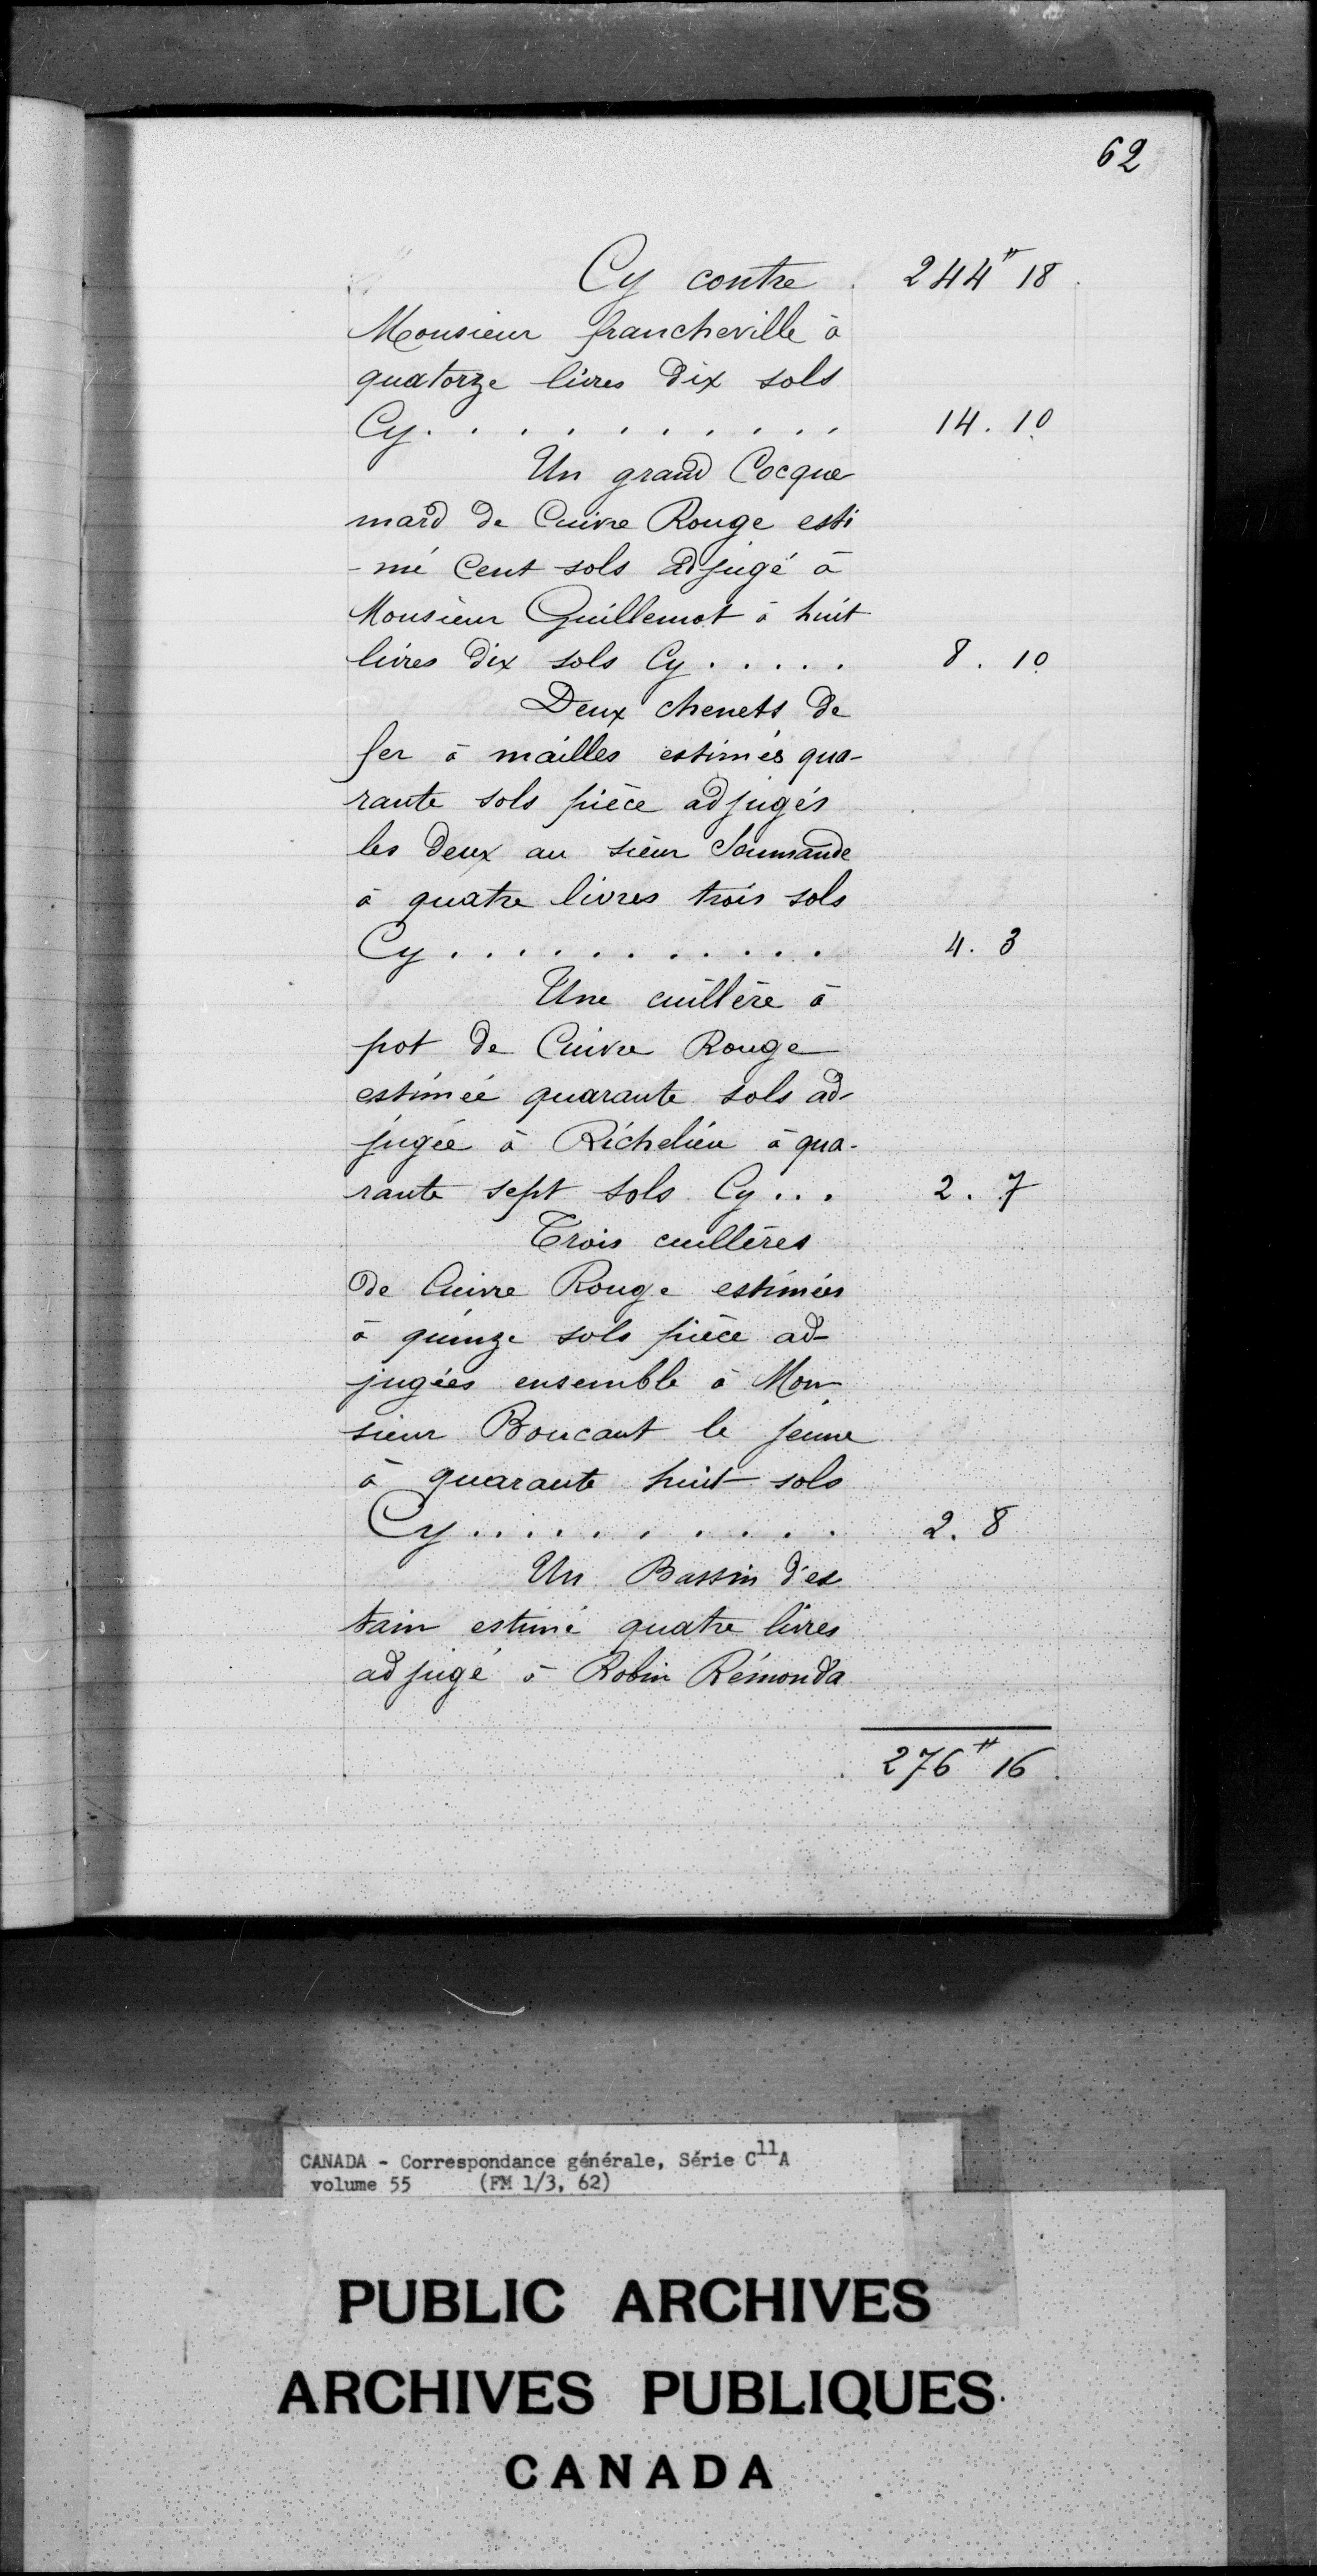 62
Cy contre . 244# 18
Monsieur francheville à
quatorze livres dix sols
Cy. . . . . . . . . . . 14. 10
Un grand Cocque
mard de Cuivre Rouge esti
-mé Cent sols adjugé à
Monsieur Guillemot à huit
livres dix sols Cy . . . . . 8. 10
Deux chenets de
fer à mailles estimés qua-
rante sols pièce adjugés
les deux au sieur Soumande
à quatre livres trois sols
Cy . . . . . . . . . . . 4. 3
Une cuillère à
pot de Cuivre Rouge
estimée quarante sols ad-
jugée à Richelieu à qua-
rante sept sols Cy . . . 2. 7
Trois cuillères
de Cuivre Rouge estimées
à quinze sols pièce ad-
jugées ensemble à Mon
sieur Boucaut le jeune
à quarante huit sols
Cy . . . . . . . . . . 2. 8
Un Bassin d'es
tain estimé quatre livres
adjugé à Robin Rémonda
276# 16
CANADA - Correspondance générale, Série C11A
volume 55 (FM 1/3, 62)
PUBLIC ARCHIVES
ARCHIVES PUBLIQUES
CANADA